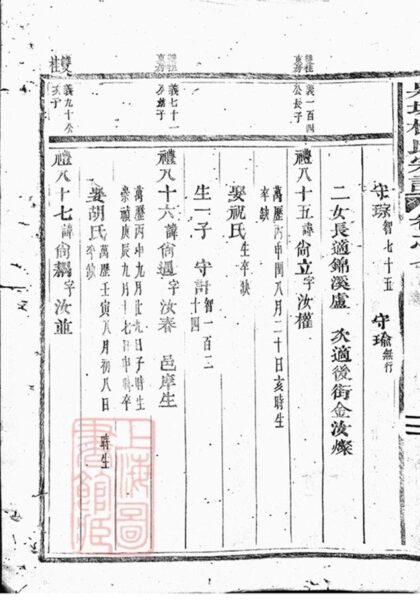 守琮智七十五 守瑜無行
二女長適錦溪盧 次適後街金汝燦
義一百四公長子
禮八十五諱尙立字汝權
萬歷丙申閏八月二十日亥時生
卒缺
娶祝氏生卒缺
生一子 守計智一百二十四
義七十一公
禮八十六諱尙字汝泰 邑庠生
萬歷丙申九月廿九日子時生
崇禎庚辰九月十七日申時卒
娶胡氏萬歷壬寅八月初八日 時生
卒缺
雙桂
義九十公次子
禮八十七諱尙字汝並
上海圖書館藏